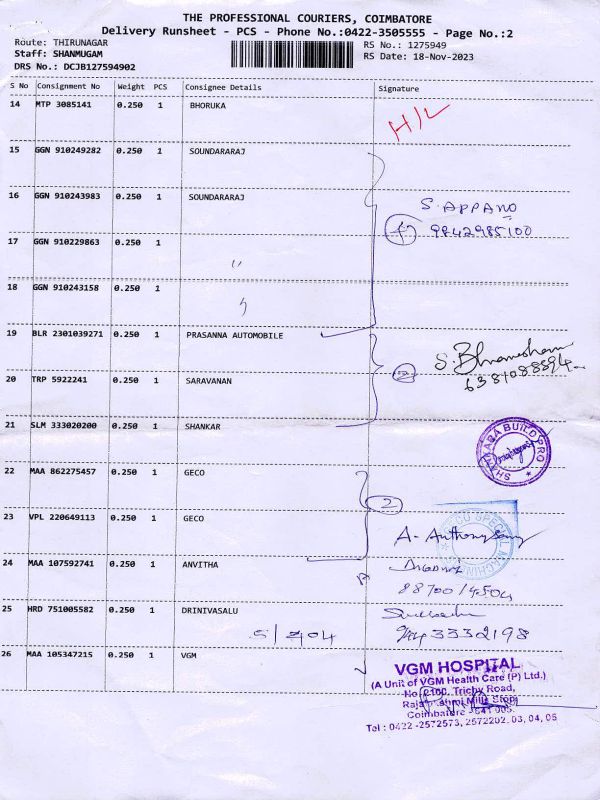 THE PROFESSIONAL COURIERS, COIMBATORE
Delivery Runsheet - PCS - Phone No.:0422-3505555 - Page No.:2
Route: THIRUNAGAR
RS No.: 1275949
Staff: SHANMUGAM
RS Date: 18-Nov-2023
DRS No.: DCJB127594902
S No Consignment No Weight PCS Consignee Details Signature
14 MTP 3085141 0.250 1 BHORUKA
H/L
15 GGN 910249282 0.250 1 SOUNDARARAJ
16 GGN 910243983 0.250 1 SOUNDARARAJ
S. APPANO
9842985100
17 GGN 910229863 0.250 1
"
18 GGN 910243158 0.250 1
19 BLR 2301039271 0.250 1 PRASANNA AUTOMOBILE
20 TRP 5922241 0.250 1 SARAVANAN
21 SLM 333020200 0.250 1 SHANKAR
SHANKARA BUILD PRO
22 MAA 862275457 0.250 1 GECO
2
23 VPL 220649113 0.250 1 GECO
A- Anthonysamy
24 MAA 107592741 0.250 1 ANVITHA
25 HRD 751005582 0.250 1 DRINIVASALU
26 MAA 105347215 0.250 1 VGM
VGM HOSPITAL
(A Unit of VGM Health Care (P) Ltd.)
No. 2100, Trichy Road,
Rajalakshmi Mills Stop,
Coimbatore - 641 005.
Tel : 0422 -2572573, 2572202, 03, 04, 05